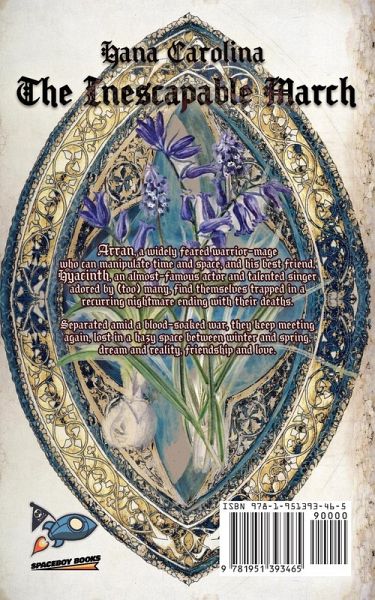 Hana Carolina
The Inescapable March
Arran, a widely feared warrior-mage
who can manipulate time and space, and his best friend,
Hyacinth, an almost-famous actor and talented singer
adored by (too) many, find themselves trapped in a
recurring nightmare ending with their deaths.
Separated amid a blood-soaked war, they keep meeting
again, lost in a hazy space between winter and spring,
dream and reality, friendship and love.
ISBN 978-1-951393-46-5
90000
9 781951 393465
SPACEBOY BOOKS